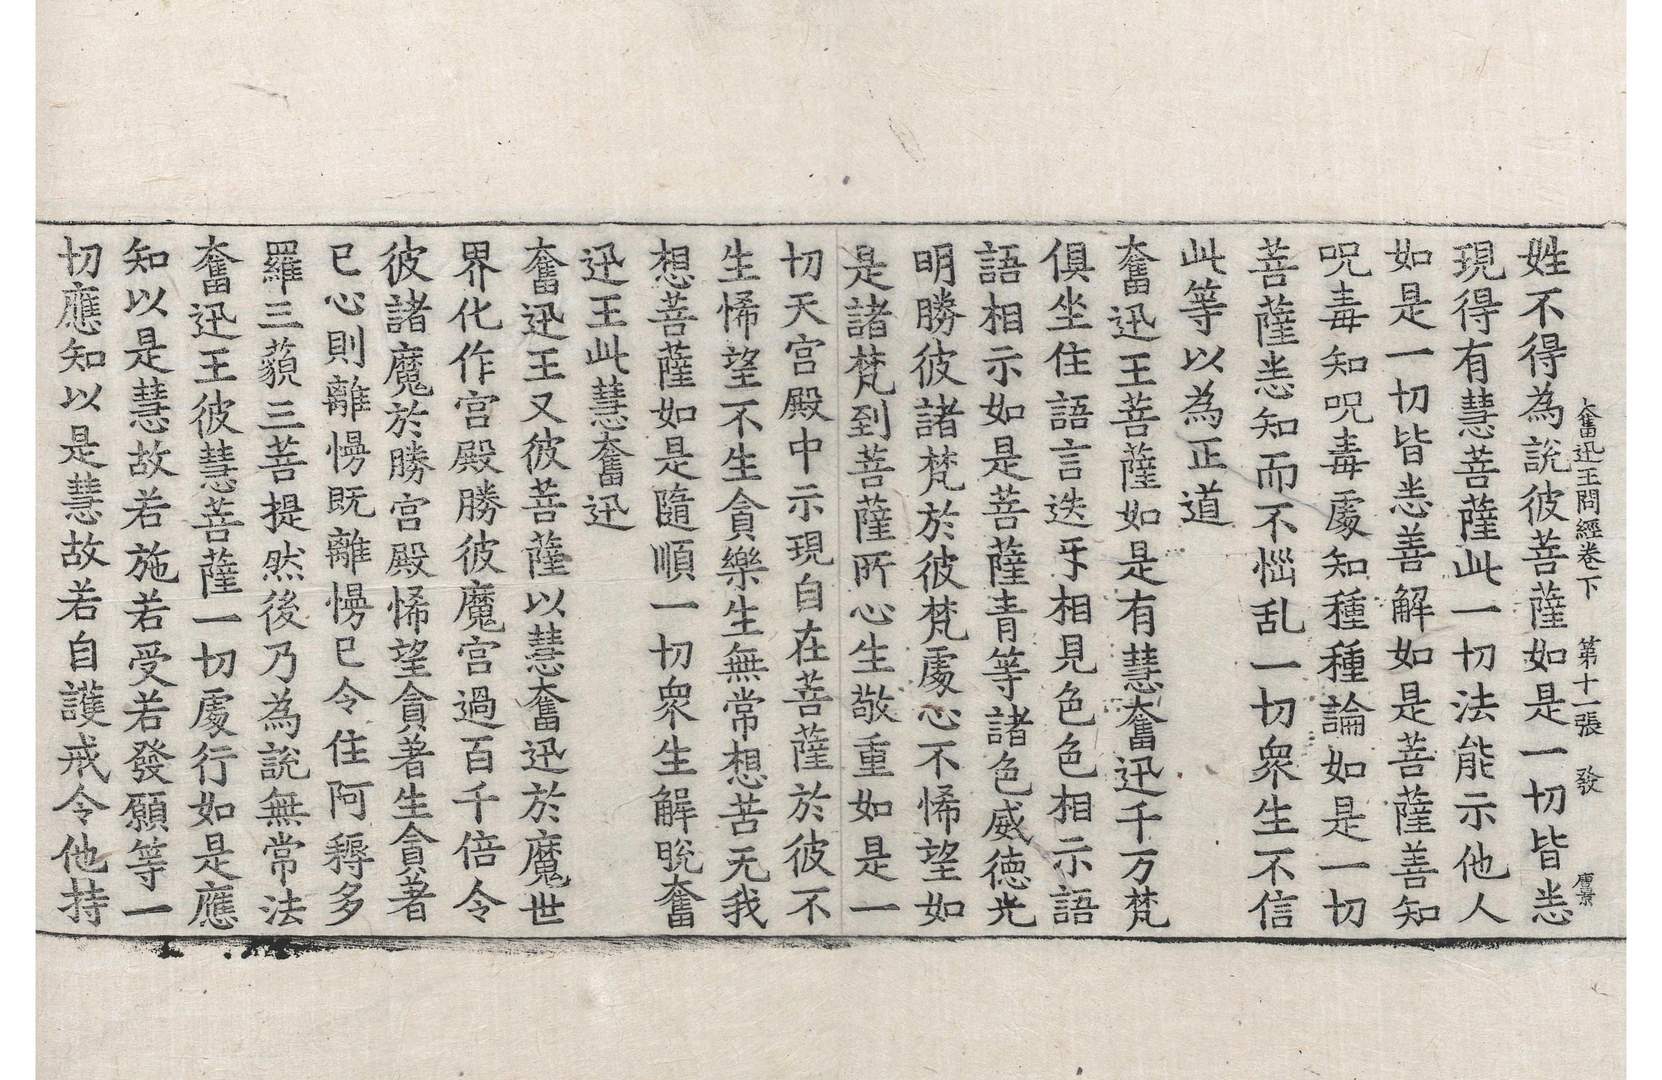 奮迅王問經卷下　第十一張　發
姓不得為說彼菩薩如是一切皆悉
現得有慧菩薩此一切法能示他人
如是一切皆悉善解如是菩薩善知
呪毒知呪毒處知種種論如是一切
菩薩悉知而不惱乱一切衆生不信
此等以為正道
奮迅王菩薩如是有慧奮迅千万梵
俱坐住語言迭㸦相見色色相示語
語相示如是菩薩青等諸色威德光
明勝彼諸梵於彼梵處心不悕望如
是諸梵到菩薩所心生敬重如是一
切天宮殿中示現自在菩薩於彼不
生悕望不生貪樂生無常想苦无我
想菩薩如是隨順一切衆生解脫奮
迅王此慧奮迅
奮迅王又彼菩薩以慧奮迅於魔世
界化作宮殿勝彼魔宮過百千倍令
彼諸魔於勝宮殿悕望貪著生貪著
已心則離慢既離慢已令住阿耨多
羅三藐三菩提然後乃為說無常法
奮迅王彼慧菩薩一切處行如是應
知以是慧故若施若受若發願等一
切應知以是慧故若自護戒令他持